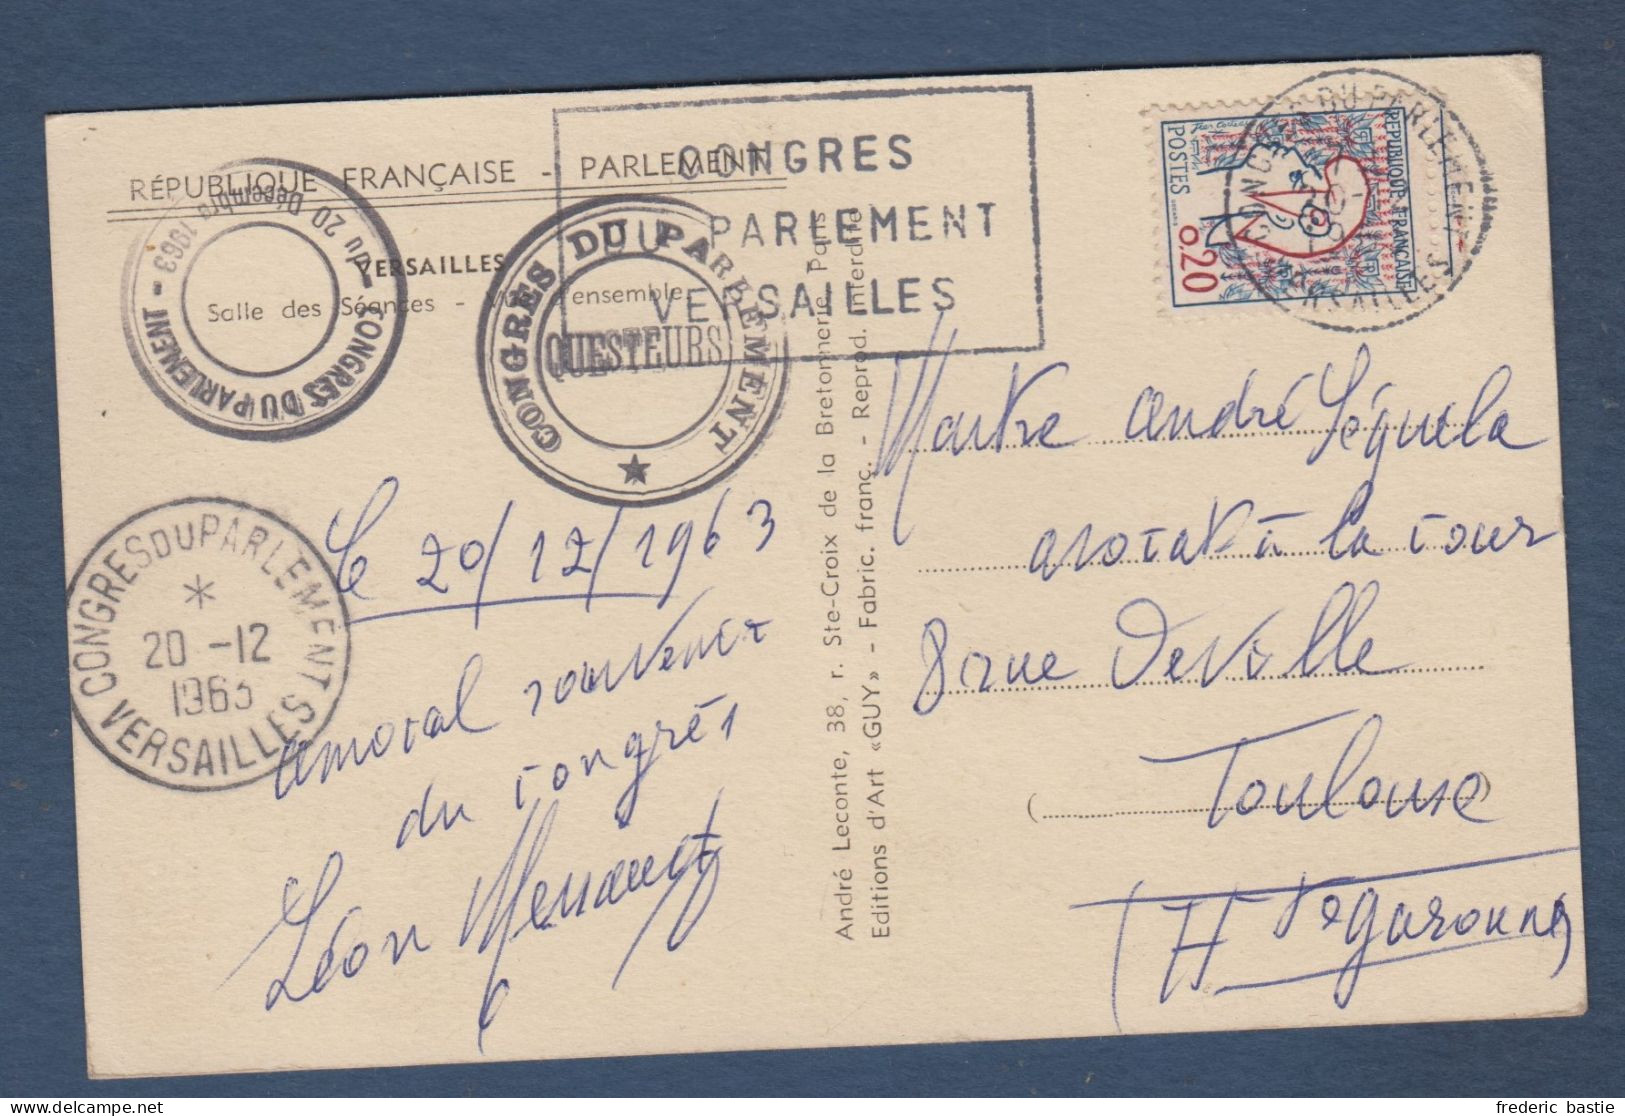 RÉPUBLIQUE FRANÇAISE - PARLEMENT
VERSAILLES
Salle des Séances - d'ensemble
CONGRÈS DU PARLEMENT - du 20 Décembre 1963 -
CONGRÈS DU PARLEMENT
QUESTEURS
CONGRES
DU PARLEMENT
VERSAILLES
CONGRES DU PARLEMENT
VERSAILLES
RÉPUBLIQUE FRANÇAISE
POSTES
0,20
CONGRES DU PARLEMENT
20 -12
1963
VERSAILLES
le 20/12/1963
amical souvenir
du congrès
Léon
André Leconte, 38, r. Ste-Croix de la Bretonnerie Paris
Editions d'Art «GUY» - Fabric. franç. - Reprod. Interdite
Maitre André Séguéla
avocat à la cour
8 rue Deville
Toulouse
(Hte garonne)
frederic bastie